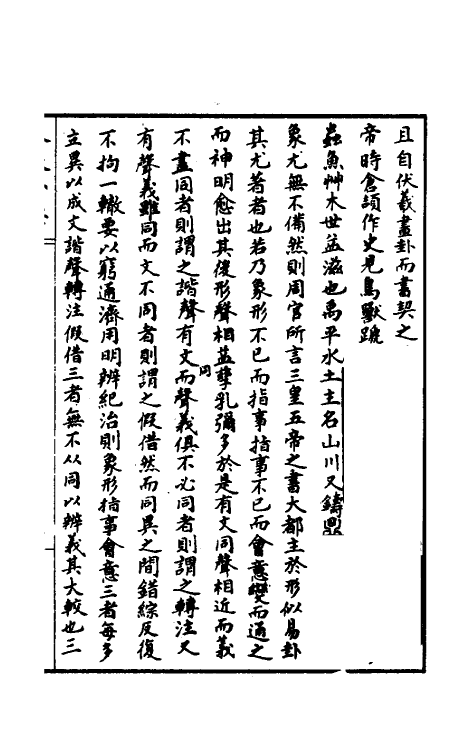 且自伏羲畫卦而書契之
帝時倉頡作史見鳥獸蹏
蟲魚艸木世益滋也禹平水土主名山川又鑄鼎
象尤無不備然則周官所言三皇五帝之書大都主於形似易卦
其尤著者也若乃象形不已而指事指事不已而會意變而通之
而神明愈出其後形聲相益孳乳彌多於是有文同聲相近而義
不盡同者則謂之諧聲有文而聲義俱不必同者則謂之轉注又
有聲義雖同而文不同者則謂之假借然而同異之間錯綜反復
不拘一轍要以窮通濟用明辨紀治則象形指事會意三者每多
立異以成文諧聲轉注假借三者無不从同以辨義其大較也三